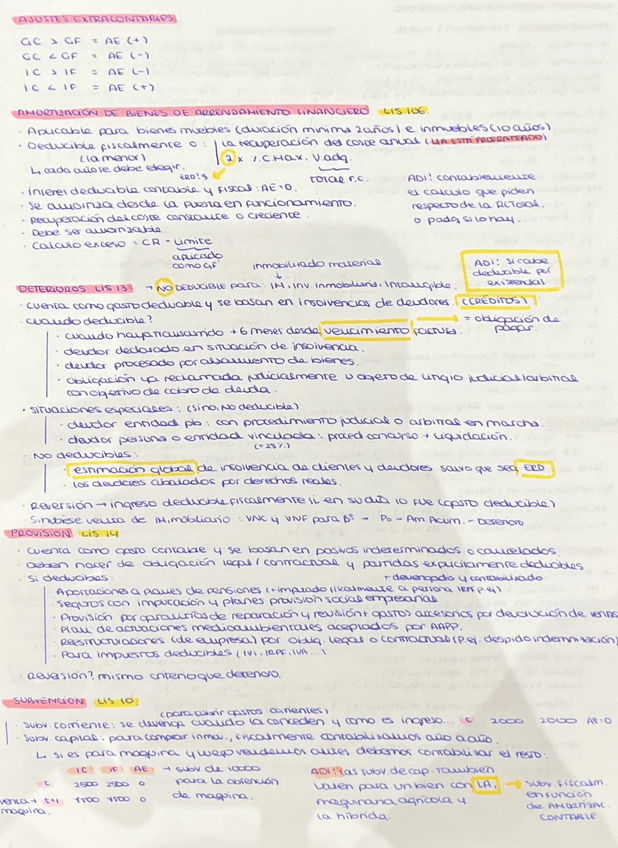 AJUSTES EXTRACONTABLES
GC > GF = AE (+)
GC < GF = AE (-)
IC > IF = AE (-)
IC < IF = AE (+)
AMORTIZACIÓN DE BIENES DE ARRENDAMIENTO FINANCIERO LIS 106
· Aplicable para bienes muebles (duración mínima 2 años) e inmuebles (10 años)
· Deducible fiscalmente o : la recuperación del coste anual (YA ESTÁ PRORRATEADO)
(la menor) 2 x %.C.Max. V.adq.
↳ cada año se debe elegir. ERD! 3 TOTAL r.c.
· Interés deducible contable y fiscal : AE = 0.
· Se amortiza desde la puesta en funcionamiento.
· Recuperación del coste constante o creciente.
· Debe ser amortizable.
· Cálculo exceso = CR - Límite
aplicado como GF
ADI! contablemente
el cálculo que piden
respecto de la RCTotal.
o pada si lo hay.
ADI! Si cabe
deducible por
existencial
inmobilizado material
DETERIOROS LIS 13 → NO DEDUCIBLE para IM, Inv. Inmobiliario, Intangible.
· Cuenta como gasto deducible y se basan en insolvencias de deudores (CRÉDITOS)
· Cuando deducible? = obligación de pagar.
· Cuando haya transcurrido + 6 meses desde vencimiento factura.
· deudor declarado en situación de insolvencia.
· deudor procesado por alzamiento de bienes.
· Obligación ya reclamada judicialmente u objeto de litigio judicial/arbitral
con objetivo de cobro de deuda.
· Situaciones especiales : (sino, No deducible)
· deudor entidad pb : con procedimiento judicial o arbitral en marcha.
· deudor persona o entidad vinculada : proced concurso + liquidación.
(+25%)
· No deducibles :
· estimación global de insolvencia de clientes y deudores salvo que sea ERD
· los deudores abalados por derechos reales.
· Reversión → ingreso deducible fiscalmente si en su día lo fue (gasto deducible)
Si hubiese venta de IM.mobiliario : VNC y VNF para Bº → Po - Am Acum. - Deterioro
PROVISIÓN LIS 14
· Cuenta como gasto contable y se basan en pasivos indeterminados o cancelados
· Deben nacer de obligación legal / contractual y partidas explícitamente deducibles.
· Si deducibles : + devengado y contabilizado
Aportaciones a planes de pensiones (+ imputado fiscalmente a persona IRPF p.ej)
· Seguros con imputación y planes provisión social empresarial
· Provisión por garantías de reparación y revisión + gastos accesorios por devolución de ventas
· Plan de actuaciones medioambientales aceptados por AAPP.
· Reestructuraciones (de empresa) por Oblig. legal o contractual (P.ej. despido indemnización)
· Para impuestos deducibles (IVI, IRPF, IVA...)
· Reversión? mismo criterio que deterioro.
SUBVENCIÓN LIS 10
(para cubrir gastos corrientes)
· Subv. corriente : se devenga cuando la conceden y como es ingreso... C 2000 2000 AE=0
· Subv. capital : para comprar inmov., fiscalmente contabilizamos año a año.
↳ Si es para máquina y luego vendemos antes debemos contabilizar el resto :
IC IF AE → subv de 10000
C 2500 2500 0 para la obtención
venta → t+1 7500 7500 0 de maquina.
maquina.
ADI! Las subv de cap. también
valen para un bien con LA, → subv. fiscalm.
maquinaria agrícola y en función
la híbrida. de AMORTIZAC. CONTABLE